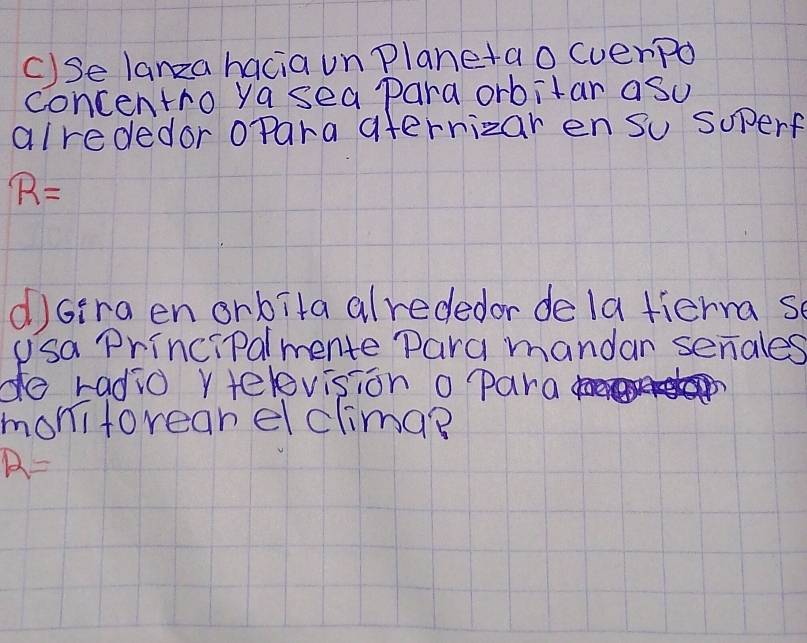 c) Se lanza hacia un Planeta o cuerpo
concentro ya sea para orbitar asu
alrededor o Para aternizar en su superf
R=
d) Gira en orbita alrededor de la tierra se
usa Principalmente Para mandar señales
de radio y television o Para
monitorear el clima?
R=